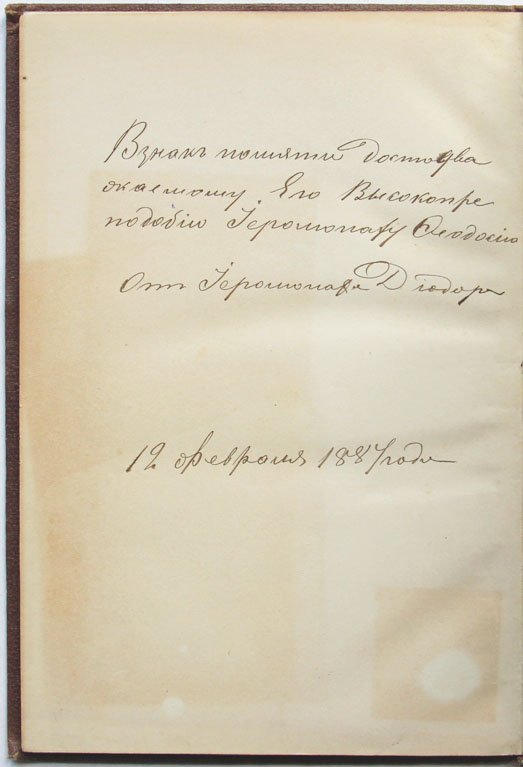 Взнакъ памяти достоува
жаемому Его Высокопре
подобію Іеромонаху Ѳеодосію
Отъ Іеромонаха Діодора
12 февраля 1887 года